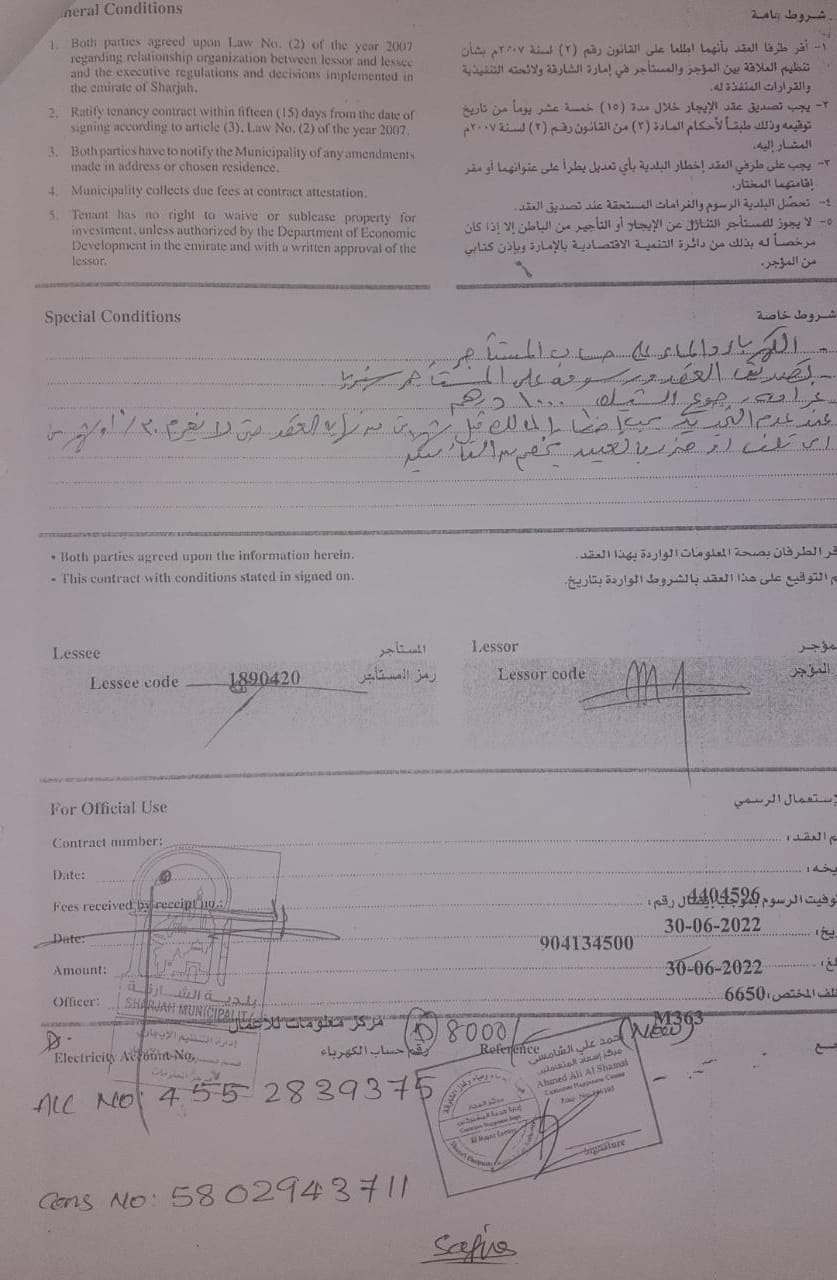 neral Conditions
شروط عامة
1. Both parties agreed upon Law No. (2) of the year 2007
regarding relationship organization between lessor and lessee
and the executive regulations and decisions implemented in
the emirate of Sharjah.
2. Ratify tenancy contract within fifteen (15) days from the date of
signing according to article (3), Law No. (2) of the year 2007.
3. Both parties have to notify the Municipality of any amendments
made in address or chosen residence.
4. Municipality collects due fees at contract attestation.
5. Tenant has no right to waive or sublease property for
investment, unless authorized by the Department of Economic
Development in the emirate and with a written approval of the
lessor.
١- أقر طرفا العقد بأنهما اطلعا على القانون رقم (٢) لسنة ٢٠٠٧م بشأن
تنظيم العلاقة بين المؤجر والمستأجر في إمارة الشارقة ولائحته التنفيذية
والقرارات المنفذة له.
٢- يجب تصديق عقد الإيجار خلال مدة (١٥) خمسة عشر يوماً من تاريخ
توقيعه وذلك طبقاً لأحكام المادة (٣) من القانون رقم (٢) لسنة ٢٠٠٧م
المشار إليه.
٣- يجب على طرفي العقد إخطار البلدية بأي تعديل يطرأ على عنوانهما أو مقر
إقامتهما المختار.
٤- تحصّل البلدية الرسوم والغرامات المستحقة عند تصديق العقد.
٥- لا يجوز للمستأجر التنازل عن الإيجار أو التأجير من الباطن إلا إذا كان
مرخصاً له بذلك من دائرة التنمية الاقتصادية بالإمارة وبإذن كتابي
من المؤجر.
Special Conditions
شروط خاصة
- الكهرباء والماء على حساب المستأجر
- تصديق العقد ورسومه على المستأجر سنويا
غرامة رجوع الشيك ١٠٠٠ درهم
عند عدم التجديد يجب إخطار المالك قبل شهرين من نهاية العقد حتى لا يغرم
اي تلف او ضرر بالعين يخصم من التأمين
• Both parties agreed upon the information herein.
- This contract with conditions stated in signed on.
قر الطرفان بصحة المعلومات الواردة بهذا العقد.
م التوقيع على هذا العقد بالشروط الواردة بتاريخ.
Lessee المستأجر
Lessee code 1890420 رمز المستأجر
Lessor مؤجر
Lessor code المؤجر
For Official Use
لإستعمال الرسمي
Contract number: م العقد :
Date: يخه :
Fees received by receipt no.: 4404596 توفيت الرسوم بموجب إيصال رقم :
Date: 30-06-2022 يخ :
904134500
Amount: 30-06-2022 لغ :
Officer: 6650 لف المختص :
بلدية الشارقة
SHARJAH MUNICIPALITY
مركز معلومات للأعمال
M363
(D) 8000/ (New)
Electricity Account No. رقم حساب الكهرباء Reference
A/C NO: 4552839375
أحمد علي الشامسي
مركز إسعاد المتعاملين
Ahmed Ali Al Shamsi
Customers Happiness Center
Signature
Cons NO: 5802943711
Safiro